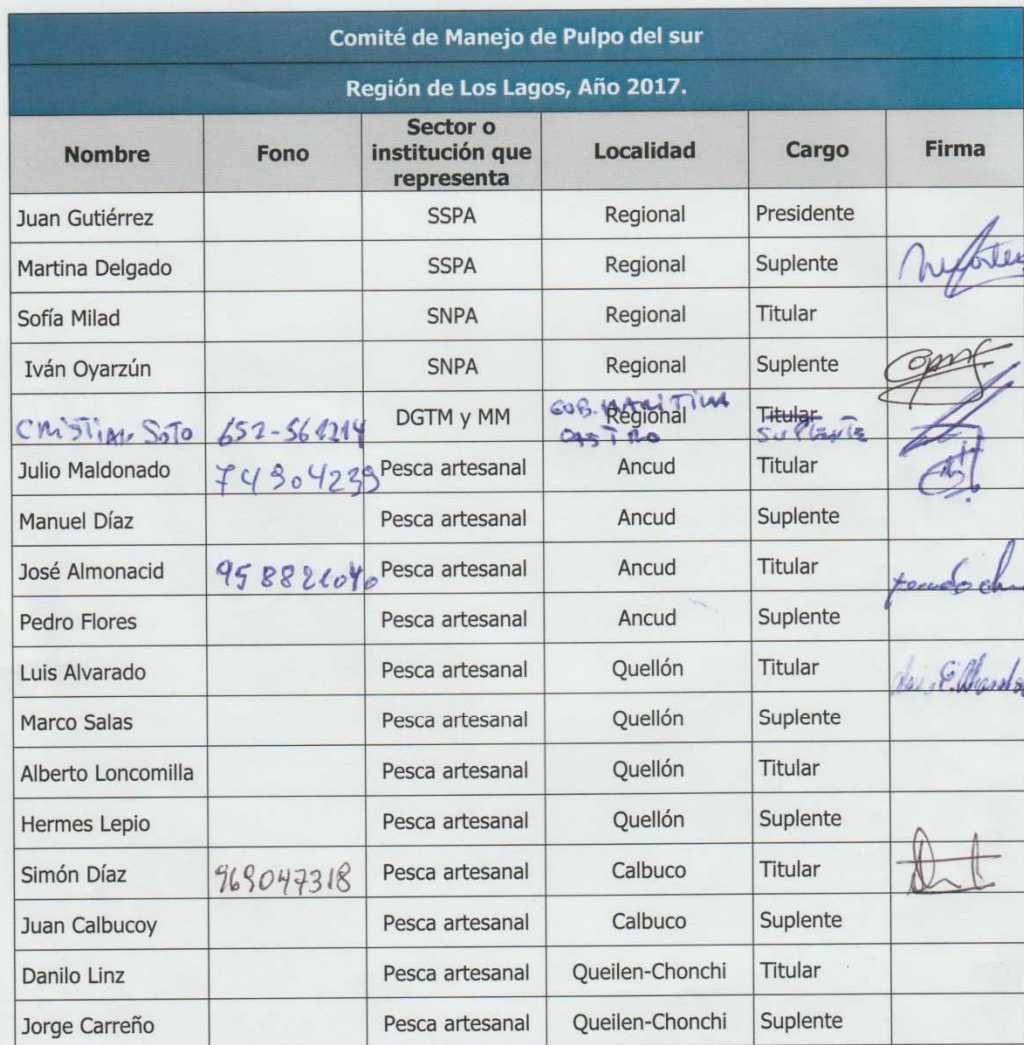 Comité de Manejo de Pulpo del sur
Región de Los Lagos, Año 2017.
Nombre Fono Sector o institución que representa Localidad Cargo Firma
Juan Gutiérrez SSPA Regional Presidente
Martina Delgado SSPA Regional Suplente
Sofía Milad SNPA Regional Titular
Iván Oyarzún SNPA Regional Suplente
CRISTIAN SOTO 652-561214 DGTM y MM Regional GOB. MARITIMA CASTRO Titular SUPLENTE
Julio Maldonado 74904239 Pesca artesanal Ancud Titular
Manuel Díaz Pesca artesanal Ancud Suplente
José Almonacid Pesca artesanal Ancud Titular
Pedro Flores Pesca artesanal Ancud Suplente
Luis Alvarado Pesca artesanal Quellón Titular
Marco Salas Pesca artesanal Quellón Suplente
Alberto Loncomilla Pesca artesanal Quellón Titular
Hermes Lepio Pesca artesanal Quellón Suplente
Simón Díaz 969047318 Pesca artesanal Calbuco Titular
Juan Calbucoy Pesca artesanal Calbuco Suplente
Danilo Linz Pesca artesanal Queilen-Chonchi Titular
Jorge Carreño Pesca artesanal Queilen-Chonchi Suplente